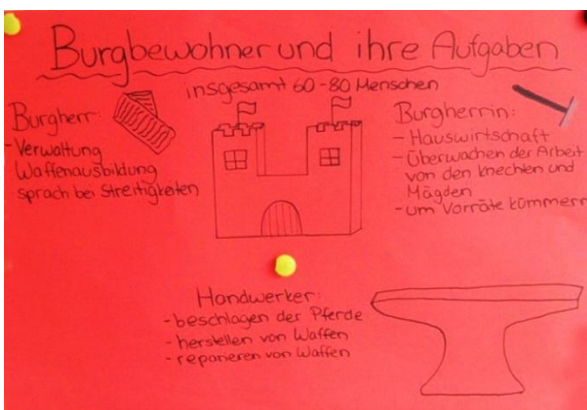 Burgbewohner und ihre Aufgaben
insgesamt 60-80 Menschen
Burgherr:
- Verwaltung
Waffenausbildung
sprach bei Streitigkeiten
Burgherrin:
- Hauswirtschaft
- Überwachen der Arbeit
von den Knechten und
Mägden
- um Vorräte kümmern
Handwerker:
- beschlagen der Pferde
- herstellen von Waffen
- reparieren von Waffen